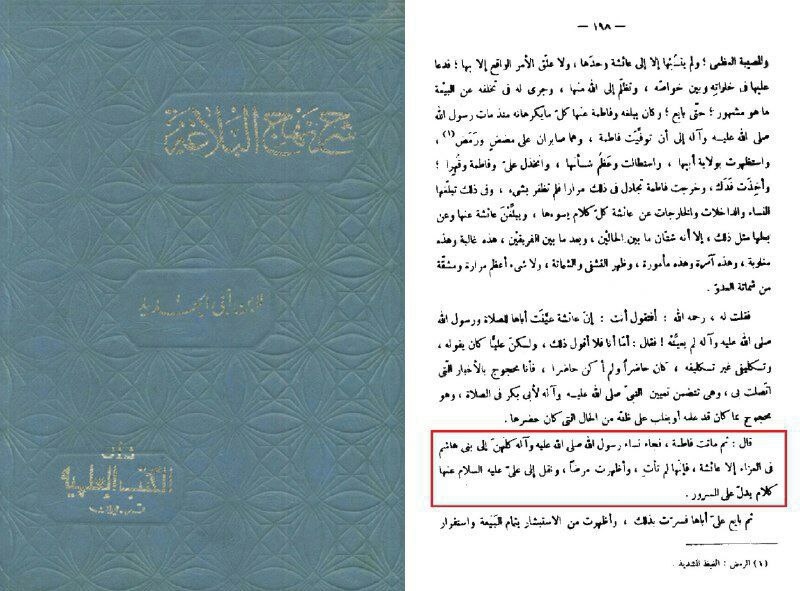 شرح نهج البلاغة
لابن أبي الحديد
دار
الكتب العلمية
— ١٩٨ —
والمصيبة العظمى ؛ ولم ينسُبها إلا إلى عائشة وحدَها ، ولا علّق الأمر الواقع إلا بها ؛ فدعا
عليها فى خلواته وبين خواصّه ، وتظلّم إلى الله منها ، وجرى له فى تخلفه عن البيعة
ما هو مشهور ؛ حتّى بايع ؛ وكان يبلغه وفاطمة عنها كلّ ما يكرهانه منذ مات رسول الله
صلى الله عليه وآله إلى أن توفّيَت فاطمة ، وهما صابران على مضضٍ ورَمَضٍ (١) ،
واستظهرت بولاية أبيها ، واستطالت وعظُم شأنها ، وانخذل علىّ وفاطمة وقُهِرا ؛
وأُخِذت فَدَك ، وخرجت فاطمة تجادل فى ذلك مرارا فلم تظفر بشىء ، وفى ذلك تبلّغها
النساء والداخلات والخارجات عن عائشة كلّ كلام يسوءها ، ويبلّغْنَ عائشة عنها وعن
بعلها مثل ذلك ، إلا أنه شتّان ما بين الحاليْن ، وبعد ما بين الفريقيْن ، هذه غالبة وهذه
مغلوبة ، وهذه آمرة وهذه مأمورة ، وظهر التشفى والشماتة ، ولا شىء أعظم مرارة ومشقّة
من شماتة العدوّ .
فقلت له ، رحمه الله : أفتقول أنت : إنّ عائشة عيّنت أباها للصلاة ورسول الله
صلى الله عليه وآله لم يعيّنْه ! فقال : أمّا أنا فلا أقول ذلك ، ولكنّ عليًّا كان يقوله ،
وتكليفى غير تكليفه ، كان حاضراً ولم أكن حاضرا ، فأنا محجوج بالأخبار التى
اتّصلت بى ، وهى تتضمن تعيين النبىّ صلى الله عليه وآله لأبى بكر فى الصلاة ، وهو
محجوج بما كان قد علمه أو يغلب على ظنّه من الحال التى كان حضرها .
قال : ثم ماتت فاطمة ، فجاء نساء رسول الله صلى الله عليه وآله كلهنّ إلى بنى هاشم
فى العزاء إلا عائشة ، فإنّها لم تأتِ ، وأظهرت مرضًا ، ونقل إلى علىّ عليه السلام عنها
كلام يدلّ على السرور .
ثم بايع علىّ أباها فسرّت بذلك ، وأظهرت من الاستبشار بتمام البَيعة واستقرار
(١) الرمض : الغيظ الشديد .